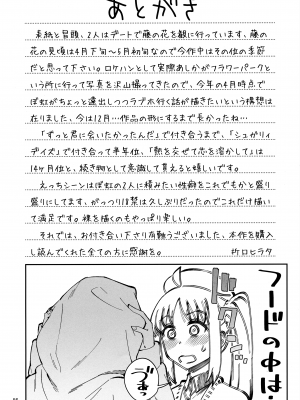 あとがき
表紙と冒頭、2人はデートで藤の花を観に行っています、藤の
花の見頃は4月下旬～5月初旬なので今作中はその位の季節
だと思って下さい。ロケハンとして実際あしかがフラワーパーク
という所に行って写真を沢山撮ってきたので、今年の4月時点で
ぼ虹がちょっと遠出しつつラブホ行く話が描きたいという構想は
在りました、今は12月…作品の形にするまで長かったね…
「ずっと君に会いたかったんだ」で付き合うまで、「シュガリィ
デイズ」で付き合って半年位、「熱を交ぜて恋を溶かして」は
14ヶ月位と、続き物として意識して貰えると嬉しいです。
えっちシーンはぼ虹の2人に積みたい性癖をこれでもかと盛り
盛りにしてます、がっつり18禁は久しぶりだったのでこれだけ描い
て満足です。裸を描くのもやっぱり楽しい。
それでは、お付き合い下さり有難うございました、本作を購入
し読んでくれた全ての方に感謝を。
竹口ヒラタ
フードの中は…
づぁっ